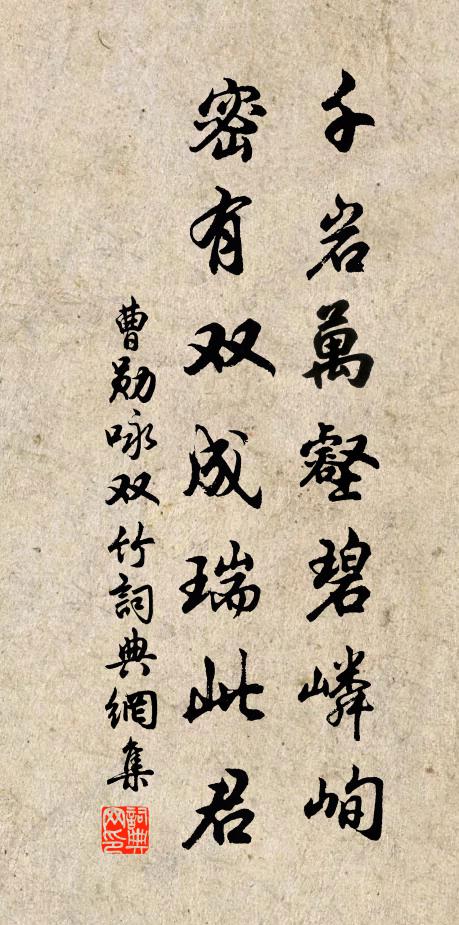 千岩萬壑碧嶙峋
密有双成瑞此君
曹勛咏双竹詞典網集
詞典网印